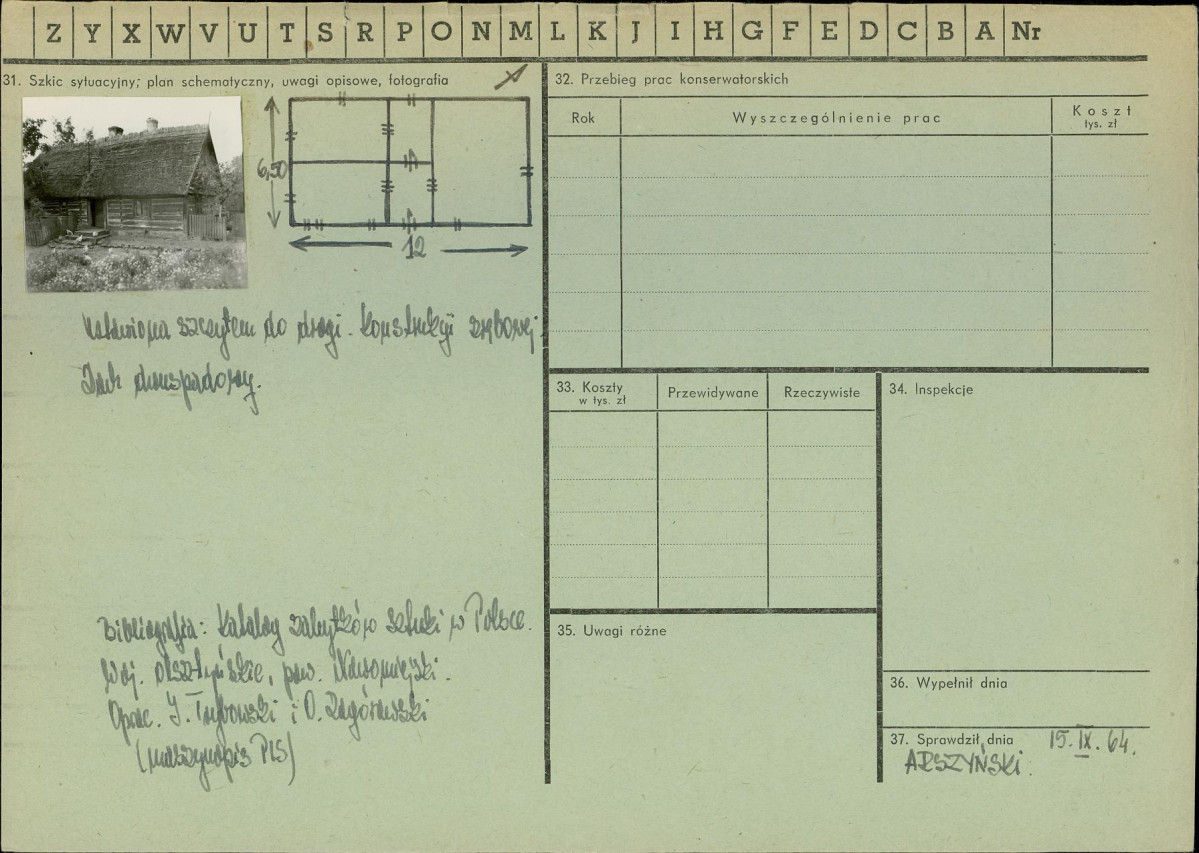 Z Y X W V U T S R P O N M L K J I H G F E D C B A Nr
31. Szkic sytuacyjny; plan schematyczny, uwagi opisowe, fotografia
6,50
12
szczytem do drogi. Konstrukcji zrębowej.
Dach dwuspadowy.
Bibliografia: Katalog zabytków sztuki w Polsce.
Woj. olsztyńskie, pow.
Oprac. I. i O.
(maszynopis PIS)
32. Przebieg prac konserwatorskich
Rok Wyszczególnienie prac Koszt
tys. zł
33. Koszty Przewidywane Rzeczywiste
w tys. zł
34. Inspekcje
35. Uwagi różne
36. Wypełnił dnia
37. Sprawdził, dnia 15. IX. 64.
ARSZYŃSKI.